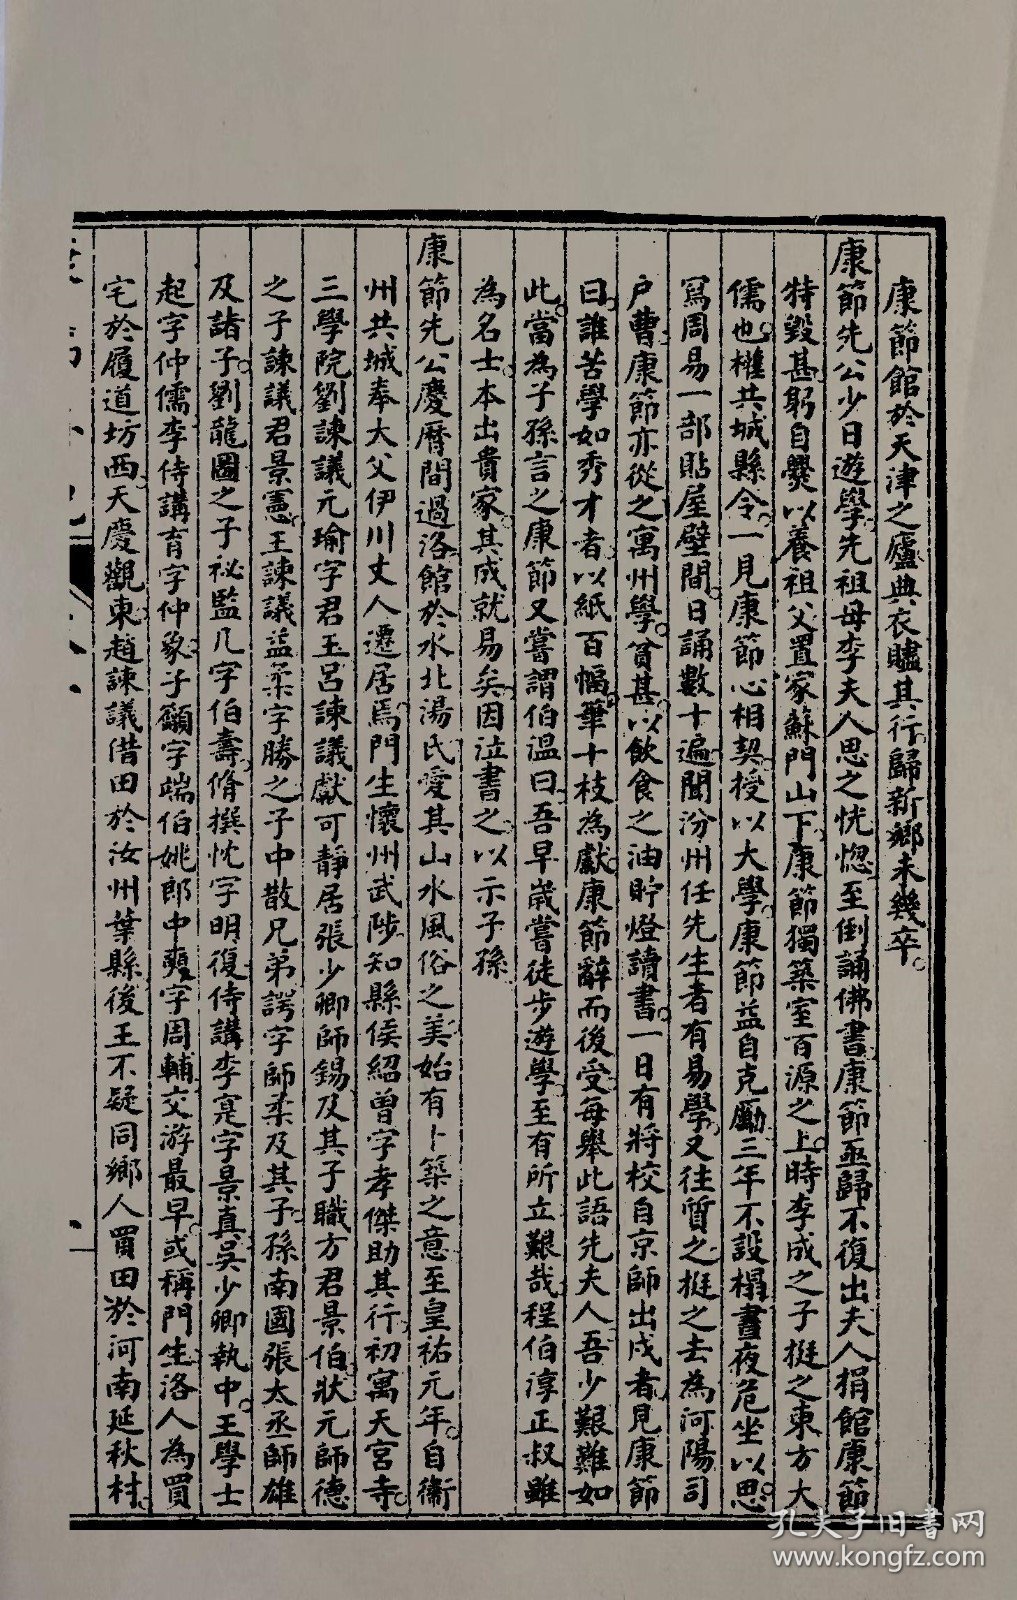 康節館於天津之廬典衣贐其行歸新鄉未幾卒。
康節先公少日遊學先祖母李夫人思之恍惚至倒誦佛書康節亟歸不復出夫人捐館康節
特毀甚躬自爨以養祖父置家蘇門山下康節獨築室百源之上時李成之子挺之東方大
儒也權共城縣令一見康節心相契授以大學康節益自克勵三年不設榻晝夜危坐以思
寫周易一部貼屋壁間日誦數十遍聞汾州任先生者有易學又往質之挺之去為河陽司
户曹康節亦從之寓州學貧甚以飲食之油貯燈讀書一日有將校自京師出戍者見康節
曰誰苦學如秀才者以紙百幅筆十枝為獻康節辭而後受每舉此語先夫人吾少艱難如
此當為子孫言之康節又嘗謂伯温曰吾早歲嘗徒步遊學至有所立艱哉程伯淳正叔雖
為名士本出貴家其成就易矣因泣書之以示子孫
康節先公慶曆間過洛館於水北湯氏愛其山水風俗之美始有卜築之意至皇祐元年自衞
州共城奉大父伊川丈人遷居焉門生懷州武陟知縣侯紹曾字孝傑助其行初寓天宮寺
三學院劉諫議元瑜字君玉呂諫議獻可靜居張少卿師錫及其子職方君景伯狀元師德
之子諫議君景憲王諫議益柔字勝之子中散兄弟諤字師柔及其子孫南國張太丞師雄
及諸子劉龍圖之子祕監几字伯壽脩撰忱字明復侍講李寔字景真吳少卿執中王學士
起字仲儒李侍講育字仲象子籲字端伯姚郎中奭字周輔交游最早或稱門生洛人為買
宅於履道坊西天慶觀東趙諫議借田於汝州葉縣後王不疑同鄉人買田於河南延秋村
孔夫子旧书网
www.kongfz.com